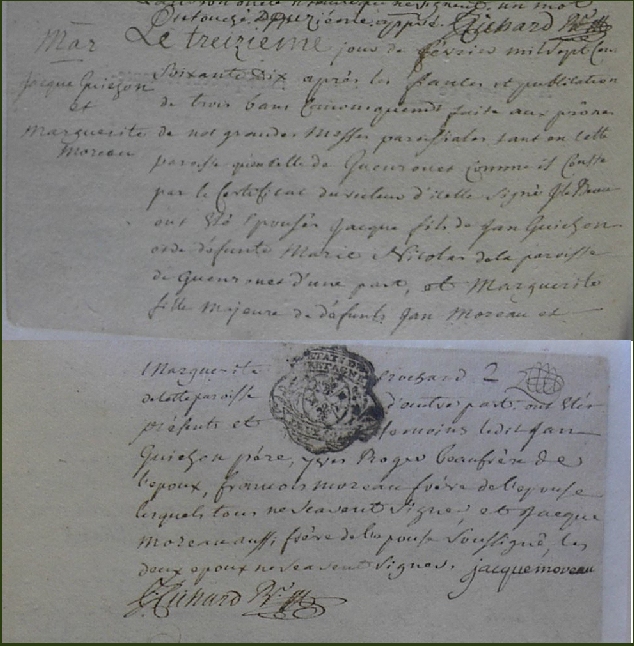 Dutouche Douzième, après Richard Ptre
Mar
Jacque Guichon
et
Marguerite
Moreau
Le treizieme jour de février mil sept cen
soixante dix après les fiançailles et publication
de trois bans faite aux prônes
de nos grandes Messes paroissiales tant en cette
paroisse qu'en celle de Guenrouet comme il Conste
par le Certificat du recteur d'icelle signé
ont été épousés Jacque fils de Jan Guichon
et de défunte Marie Nicolas de la paroisse
de Guenrouet d'une part, et Marguerite
fille Majeure de défunts Jan Moreau et
Marguerite Rochard
de cette paroisse d'autre part; ont été
présents et temoins ledit Jan
Guichon père, yves Roger beaufrère de
l'epoux, francois moreau frère de l'epouse
lesquels tous ne scavent signer, et Jacque
moreau aussi frère de l'epouse soussigné, les
deux epoux ne scavent signer. jacque moreau
Richard Ptre
ETAT DE
BRETAGNE